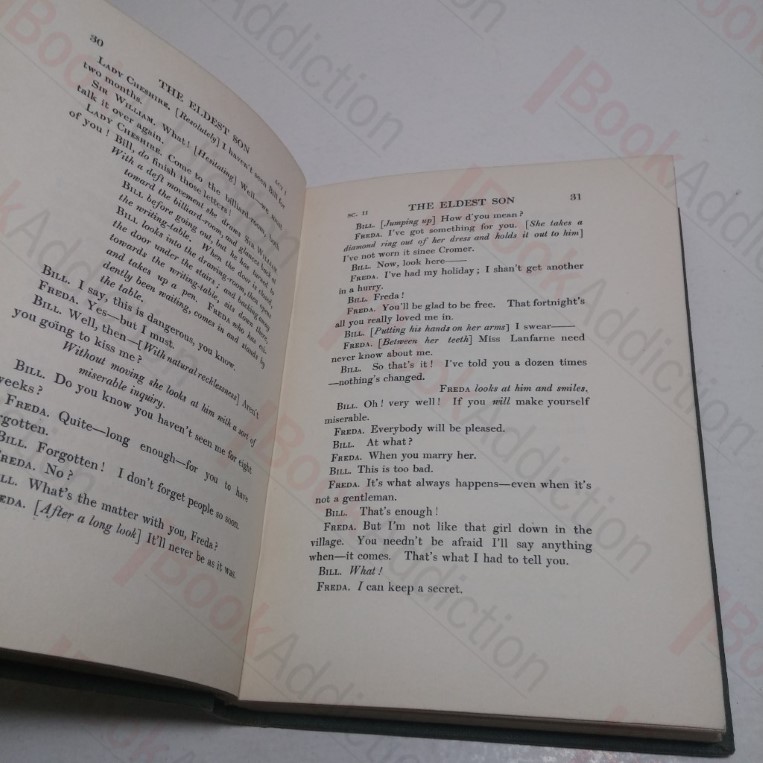 30
THE ELDEST SON
ACT I
LADY CHESHIRE. [Resolutely] I haven't seen Bill for
two months.
SIR WILLIAM. What! [Hesitating] Well—
talk it over again.
LADY CHESHIRE. Come to the billiard-room,
of you! Bill, do finish those letters!
With a deft movement she draws SIR WILLIAM
toward the billiard-room, and glances back at
BILL before going out, but he has
the writing-table. When the door is closed,
BILL looks into the drawing-room, then opens
the door under the stairs; and backing away
towards the writing-table, sits down there,
and takes up a pen. FREDA who has evi-
dently been waiting, comes in and stands by
the table.
BILL. I say, this is dangerous, you know.
FREDA. Yes—but I must.
BILL. Well, then—[With natural recklessness] Aren't
you going to kiss me?
Without moving she looks at him with a sort of
miserable inquiry.
BILL. Do you know you haven't seen me for eight
weeks?
FREDA. Quite—long enough—for you to have
forgotten.
BILL. Forgotten! I don't forget people so soon.
FREDA. No?
LL. What's the matter with you, Freda?
EDA. [After a long look] It'll never be as it was.
SC. II
THE ELDEST SON
31
BILL. [Jumping up] How d'you mean?
FREDA. I've got something for you. [She takes a
diamond ring out of her dress and holds it out to him]
I've not worn it since Cromer.
BILL. Now, look here——
FREDA. I've had my holiday; I shan't get another
in a hurry.
BILL. Freda!
FREDA. You'll be glad to be free. That fortnight's
all you really loved me in.
BILL. [Putting his hands on her arms] I swear——
FREDA. [Between her teeth] Miss Lanfarne need
never know about me.
BILL. So that's it! I've told you a dozen times
—nothing's changed.
FREDA looks at him and smiles.
BILL. Oh! very well! If you will make yourself
miserable.
FREDA. Everybody will be pleased.
BILL. At what?
FREDA. When you marry her.
BILL. This is too bad.
FREDA. It's what always happens—even when it's
not a gentleman.
BILL. That's enough!
FREDA. But I'm not like that girl down in the
village. You needn't be afraid I'll say anything
when—it comes. That's what I had to tell you.
BILL. What!
FREDA. I can keep a secret.
BookAddiction